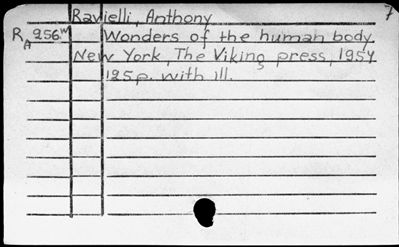 7
Ravielli, Anthony
RA 956w Wonders of the human body.
New York, The Viking press, 1954
125p. with ill.